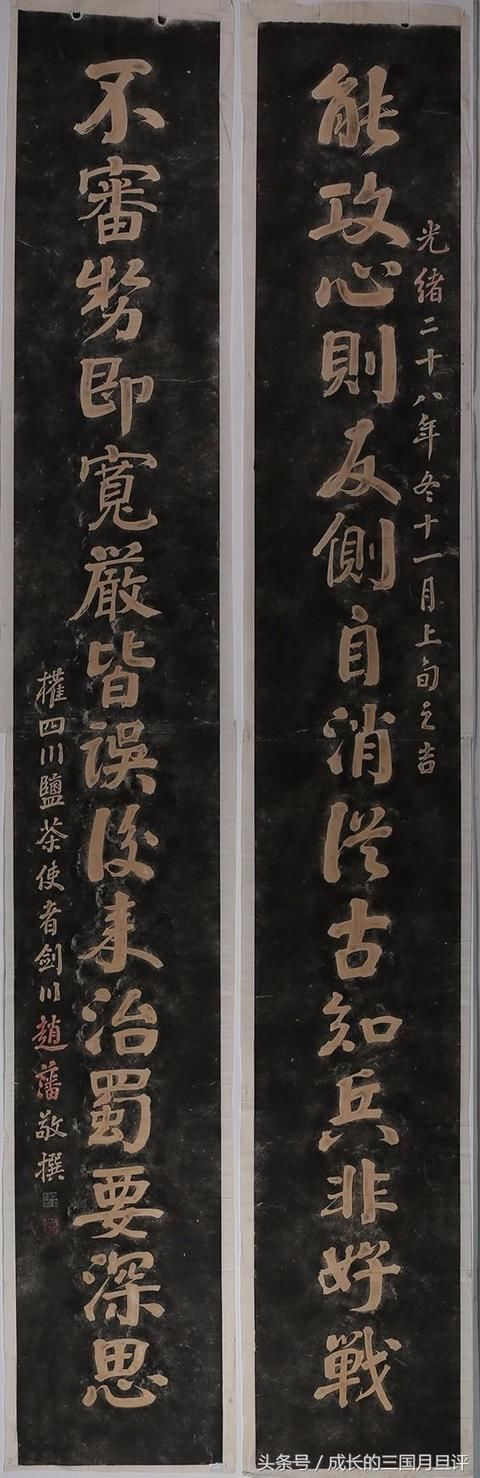 光緒二十八年冬十一月上旬之吉
能攻心則反側自消從古知兵非好戰
不審勢即寬嚴皆誤後來治蜀要深思
權四川鹽茶使者劍川趙藩敬撰
头条号 / 成长的三国月旦评